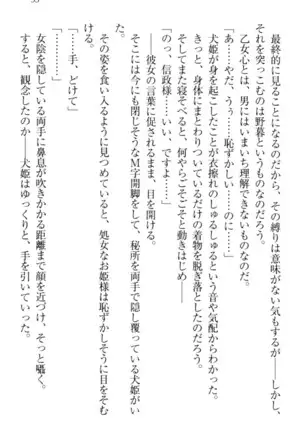 最終的に見ることになるのだから、その縛りは意味がない気もするが――しかし、
それを突っこむのは野暮というものなのだろう。
乙女心とは、男にはいまいち理解できないものなのだ。
「あ……やだ、うぅ……恥ずかしい……のに……」
犬姫が身を起こしたことが衣擦れのしゅるしゅるという音や気配からわかる。
きっと、身体にまとわりついているだけの着物を脱ぎ落としたのだろう。
そしてまた寝そべると、何やらごそごそと動きはじめ――
「のっ、信政、いいです、ですよ……」
――彼女の言葉に促されるまま、目を開ける。
そこには今にも閉じそうなM字開脚をして、秘所を両手で隠し覆っている犬姫がい
る。
その姿を食い入るように見つめていると、処女なお姫様は恥ずかしそうに目をそむ
ける。
「……手、どけて」
「………」
女陰を隠している両手に鼻息が吹きかかる距離まで顔を近づけ、そっと囁く。
すると、観念したのか――犬姫はゆっくりと、手を引いていった。